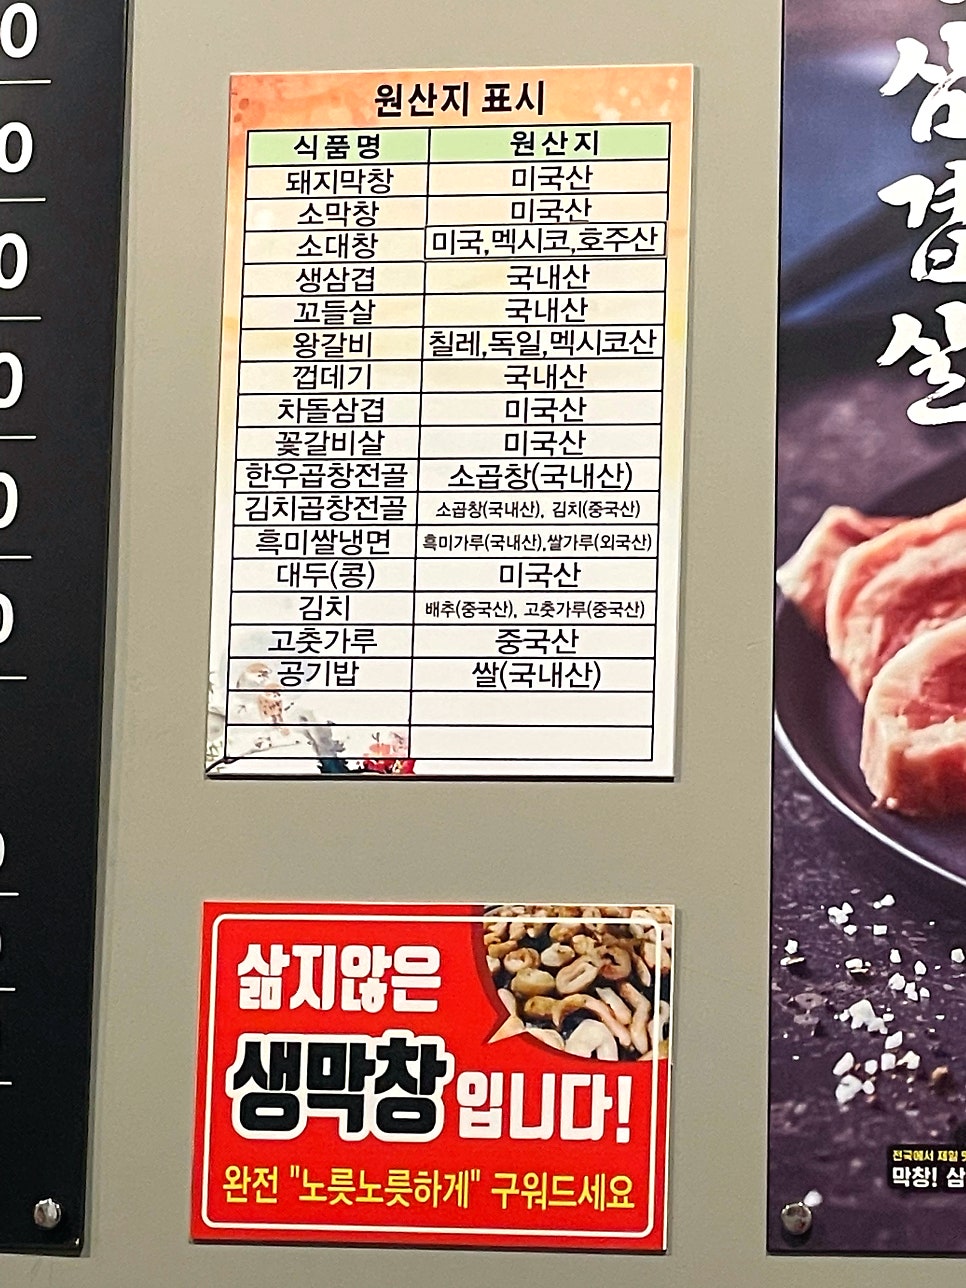 0
0
0
0
0
0
원산지 표시
식품명 원산지
돼지막창 미국산
소막창 미국산
소대창 미국,멕시코,호주산
생삼겹 국내산
꼬들살 국내산
왕갈비 칠레,독일,멕시코산
껍데기 국내산
차돌삼겹 미국산
꽃갈비살 미국산
한우곱창전골 소곱창(국내산)
김치곱창전골 소곱창(국내산), 김치(중국산)
흑미쌀냉면 흑미가루(국내산),쌀가루(외국산)
대두(콩) 미국산
김치 배추(중국산), 고춧가루(중국산)
고춧가루 중국산
공기밥 쌀(국내산)
삶지않은
생막창입니다!
완전 "노릇노릇하게" 구워드세요
삼겹살
전국에서 제일
막창! 삼